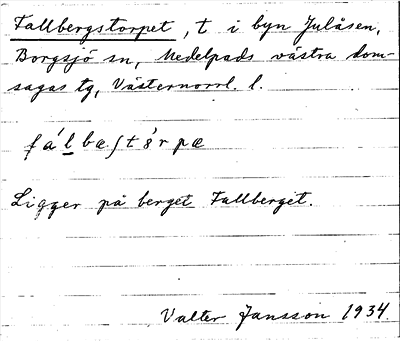 Fallbergstorpet, t i byn Julåsen,
Borgsjö sn, Medelpads västra dom-
sagas tg, Västernorrl. l.
fálbæʃtórpæ
Ligger på berget Fallberget.
Valter Jansson 1934.